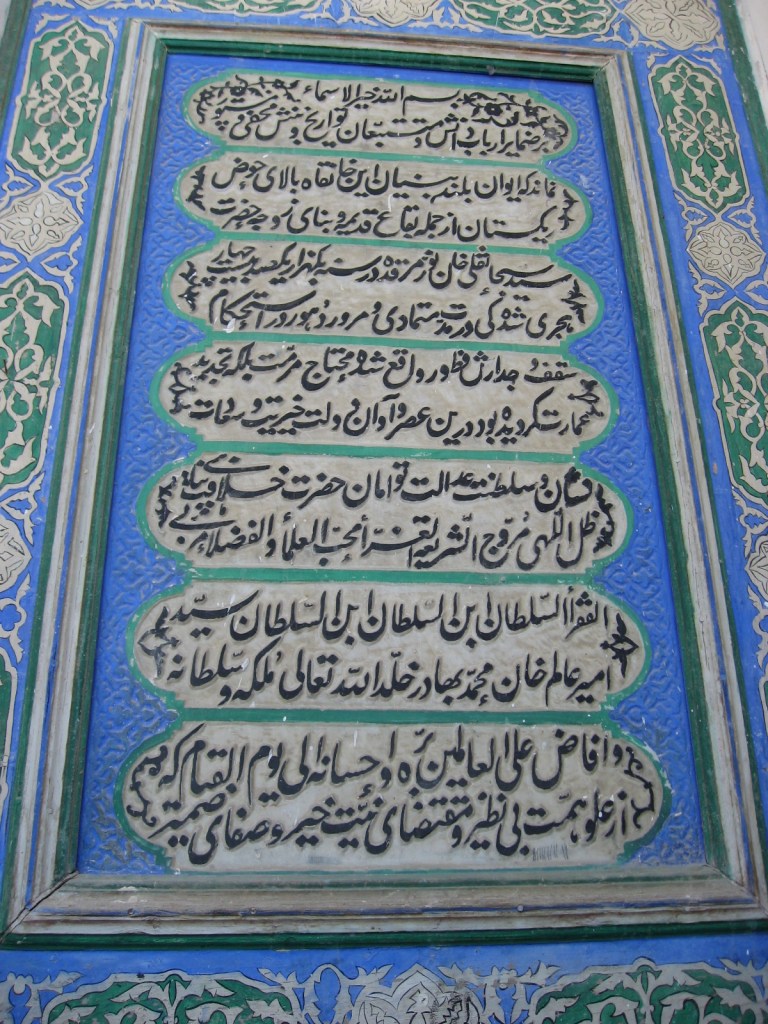 بسم الله خیر الاسماء
بر ضمایر ارباب دانش و متتبعان تواریخ و بینش مخفی و مستور
نماند که ایوان بلند بنیان این خانقاه بالای حوض
ریگستان از جمله بقاع قدیمه و بنای زوجه حضرت
سید سبحانقلی خان نور مرقده در سنه یکهزار یکصد بیست چهار
هجری شدگی در مدت متمادی و مرور دهور در استحکام
سقف و جدارش فطور واقع شده محتاج مرمت بلکه تجدید
عمارت گردیده بود درین عصر و آوان دولت خیریت و
نشان و سلطنت عدالت توامان حضرت خلافت پناهی
ظل اللهی مروج الشریعة الغرأ محب العلمأ و الفضلا مربی
الفقرأ السلطان ابن السلطان ابن السلطان سید
امیر عالم خان محمد بهادر خلد الله تعالی ملکه و سلطانه
و افاض علی العالمین بره و احسانه الی یوم القیام که
از علو همت بی نظیر و مقتضای نیت خیر و صفای ضمیر